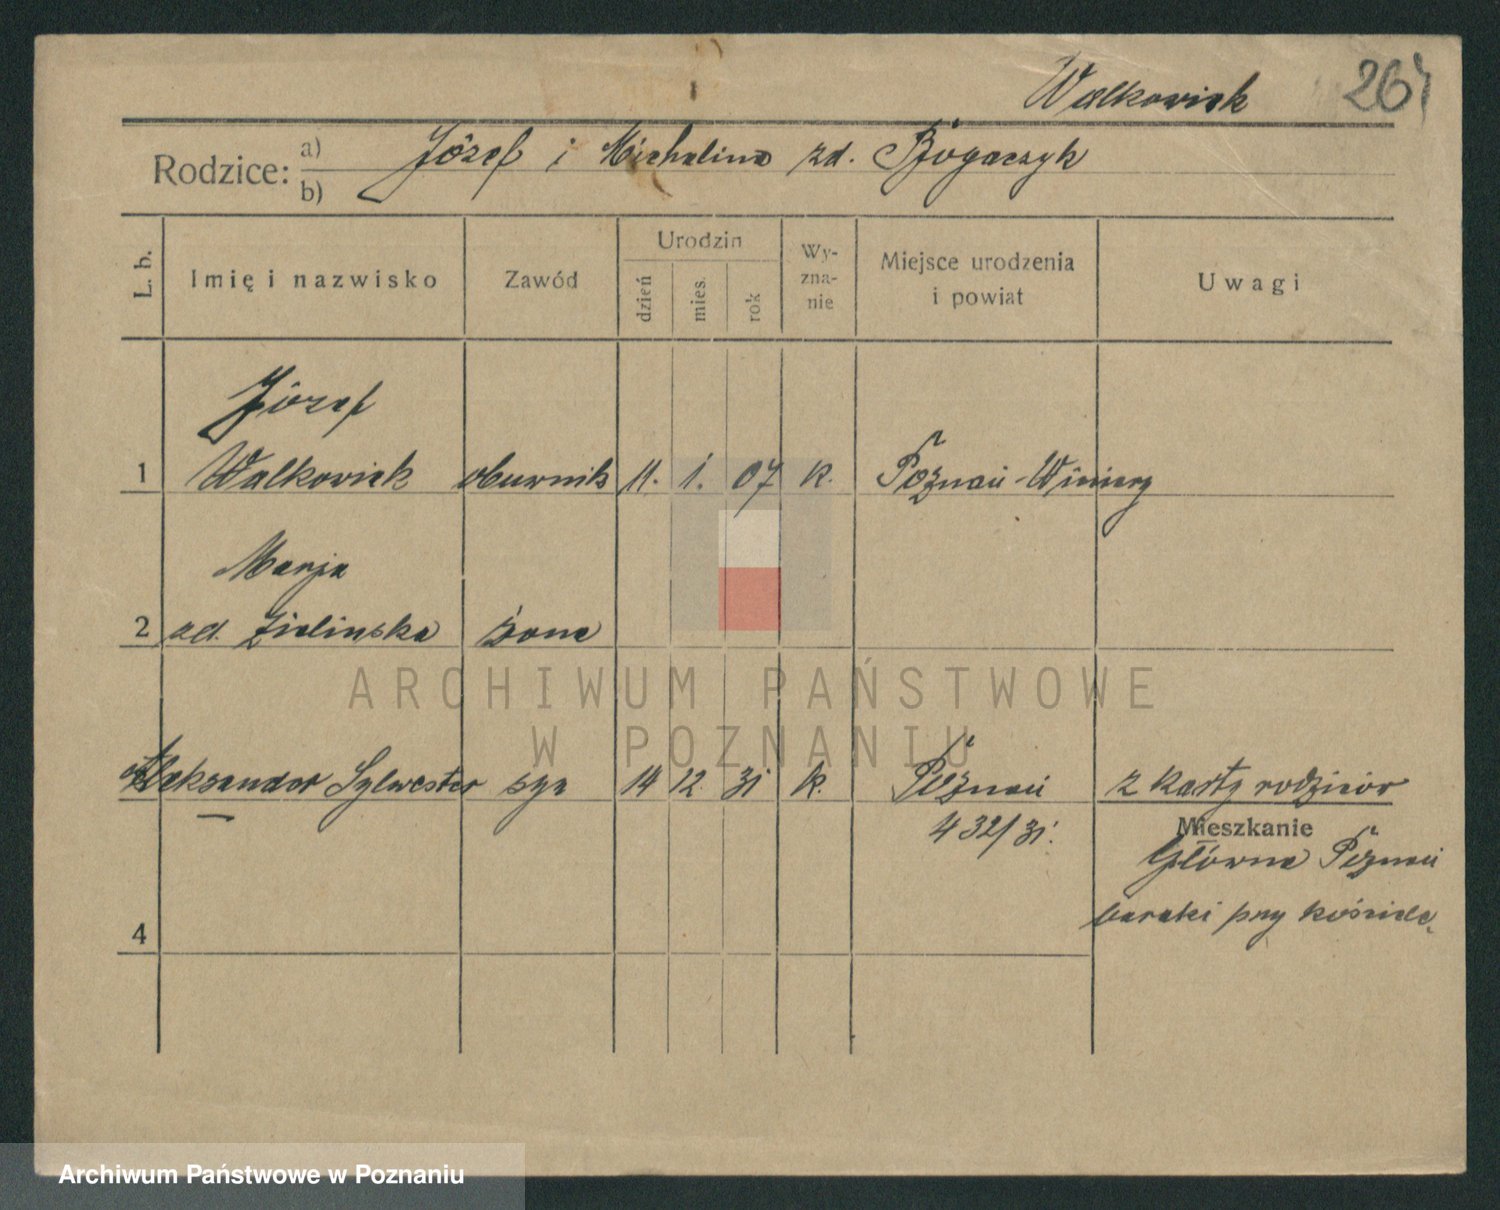 Walkowiak 267
Rodzice: a) b) Józef i Michalina zd. Bogaczyk
L. b. Imię i nazwisko Zawód Urodzin dzień mies. rok Wy-zna-nie Miejsce urodzenia i powiat Uwagi
Józef
1 Walkowiak obuwnik 11. 1. 07 k. Poznań-Winiary
Marja
2 zd. Zielinska żona
Aleksander Sylwester syn 14 12. 31 k. Poznań z karty rodziców
432/31.
Mieszkanie
Główna Poznań
baraki przy kościele
4
ARCHIWUM PAŃSTWOWE
W POZNANIU
Archiwum Państwowe w Poznaniu